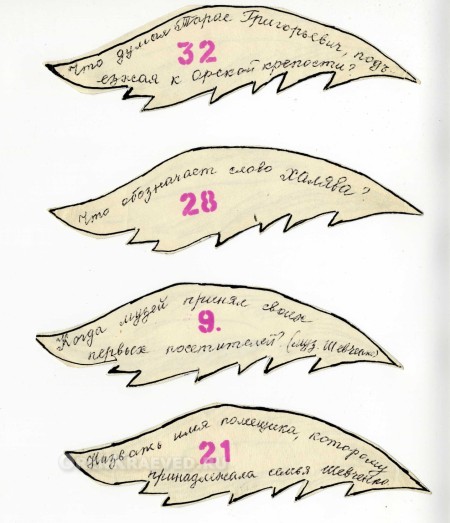 Что думал Тарас Григорьевич, подъ-
32
езжая к Орской крепости?
Что обозначает слово халява?
28
Когда музей принял своих
9.
первых посетителей? (муз. Шевченко)
Назвать имя помещика, которому
21
принадлежала семья Шевченко